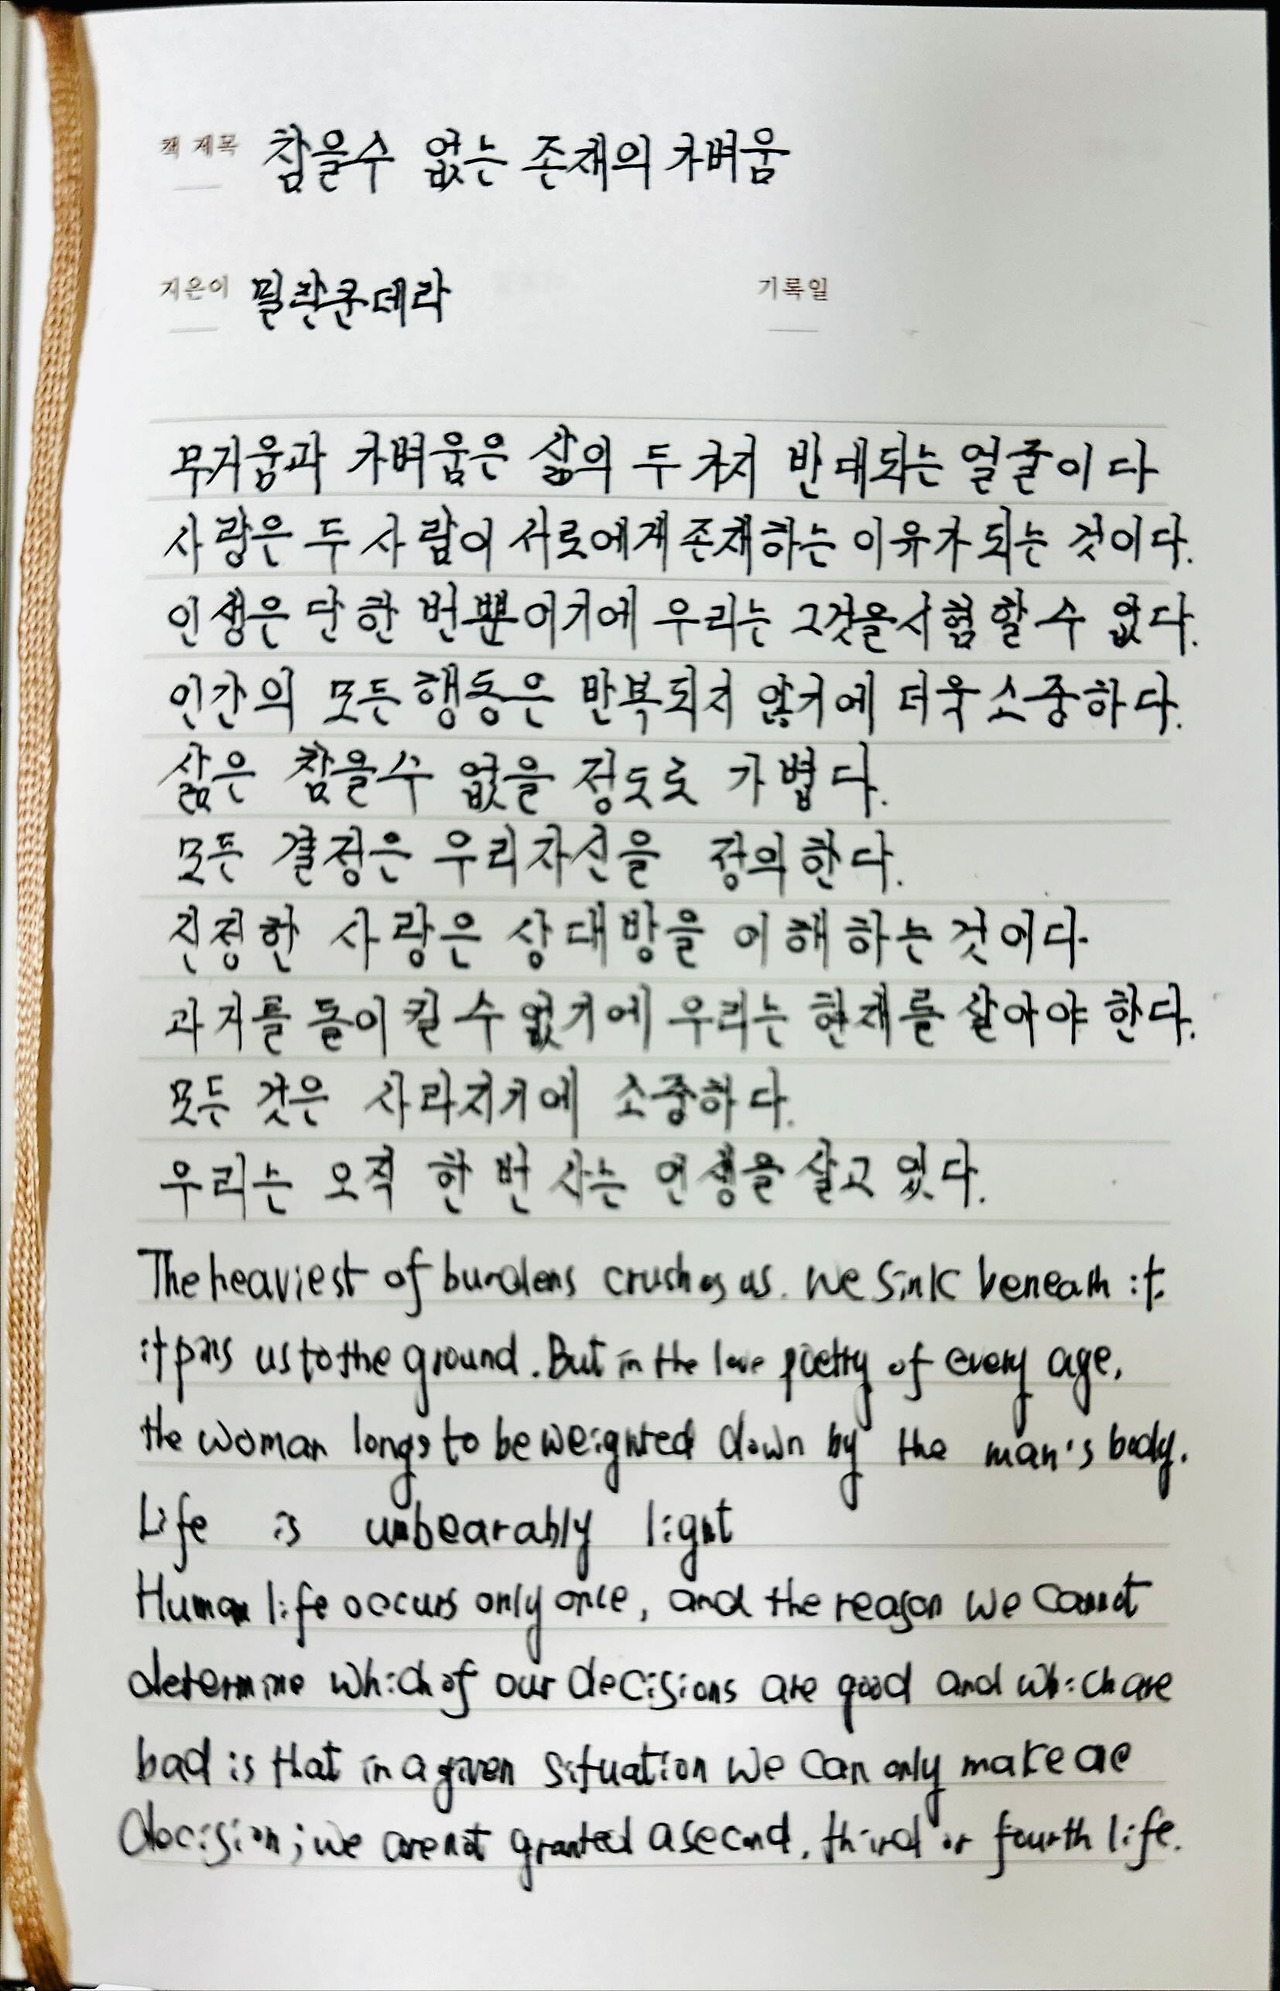 책 제목 참을수 없는 존재의 가벼움
지은이 밀란쿤데라 기록일
무거움과 가벼움은 삶의 두가지 반대되는 얼굴이다
사랑은 두 사람이 서로에게 존재하는 이유가 되는 것이다.
인생은 단 한 번뿐이기에 우리는 그것을 시험할 수 없다.
인간의 모든 행동은 반복되지 않기에 더욱 소중하다.
삶은 참을수 없을 정도로 가볍다.
모든 결정은 우리자신을 정의한다.
진정한 사랑은 상대방을 이해하는 것이다.
과거를 돌이킬 수 없기에 우리는 현재를 살아야 한다.
모든 것은 사라지기에 소중하다.
우리는 오직 한 번 사는 인생을 살고 있다.
The heaviest of burdens crushes us. We sink beneath it.
it pins us to the ground. But in the love poetry of every age,
the woman longs to be weighted down by the man's body.
Life is unbearably light
Human life occurs only once, and the reason we cannot
determine which of our decisions are good and which are
bad is that in a given situation we can only make one
decision; we are not granted a second, third or fourth life.